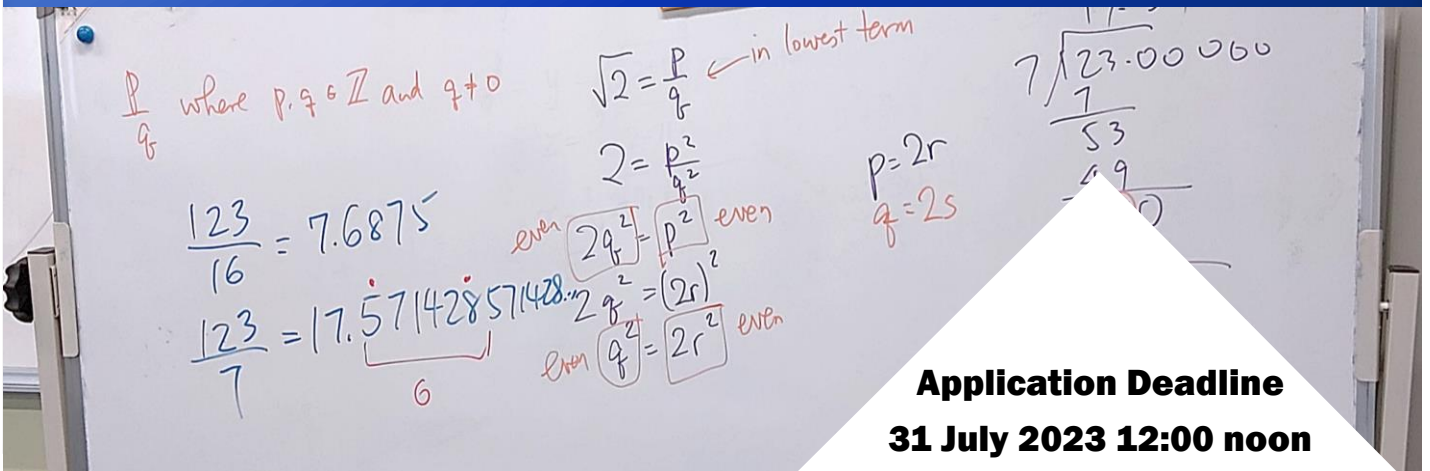 p/q where p, q ∈ ℤ and q ≠ 0
123/16 = 7.6875
123/7 = 17.571428571428...
6
√2 = p/q ← in lowest term
2 = p²/q²
even 2q² = p² even
2q² = (2r)²
even q² = 2r² even
p = 2r
q = 2s
7 23.00000
7
53
49
Application Deadline
31 July 2023 12:00 noon